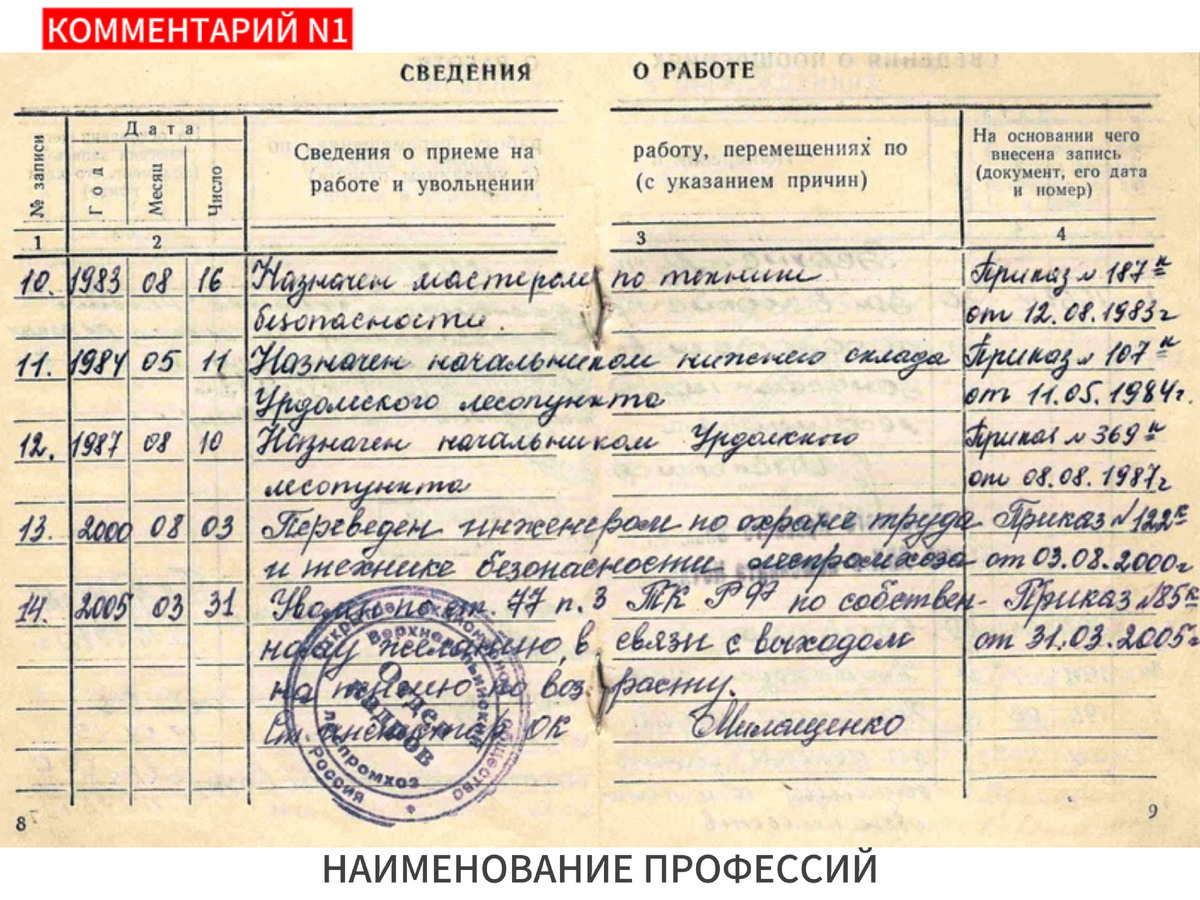 КОММЕНТАРИЙ N1
СВЕДЕНИЯ О РАБОТЕ
№ записи
Дата
Год
Месяц
Число
Сведения о приеме на работу, перемещениях по
работе и увольнении (с указанием причин)
На основании чего
внесена запись
(документ, его дата
и номер)
1 2 3 4
10. 1983 08 16 Назначен мастером по технике Приказ № 187 к
безопасности. от 12.08.1983г
11. 1984 05 11 Назначен начальником нижнего склада Приказ № 107 к
Урдомского лесопункта от 11.05.1984г.
12. 1987 08 10 Назначен начальником Урдомского Приказ № 369 к
лесопункта от 08.08.1987г
13. 2000 08 03 Переведен инженером по охране труда Приказ № 122к
и технике безопасности леспромхоза от 03.08.2000г
14. 2005 03 31 Уволен по ст. 77 п.3 ТК РФ по собствен- Приказ №85к
ному желанию, в связи с выходом от 31.03.2005г
на пенсию по возрасту.
Ст. инспектор ОК Милащенко
Отдел
кадров
леспромхоз
Россия
общество
8 9
НАИМЕНОВАНИЕ ПРОФЕССИЙ